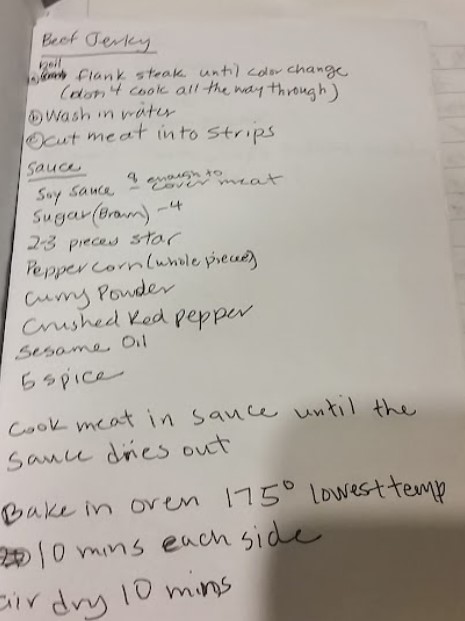 Beef Jerky
boil
flank steak until color change
(don't cook all the way through)
ⓑ Wash in water
ⓒ cut meat into strips
Sauce
Soy Sauce & enough to cover meat
Sugar (Brown) - 4
2-3 pieces star
Pepper corn (whole pieces)
Curry Powder
Crushed Red pepper
Sesame Oil
5 spice
Cook meat in sauce until the
sauce dries out
Bake in oven 175° lowest temp
10 mins each side
air dry 10 mins